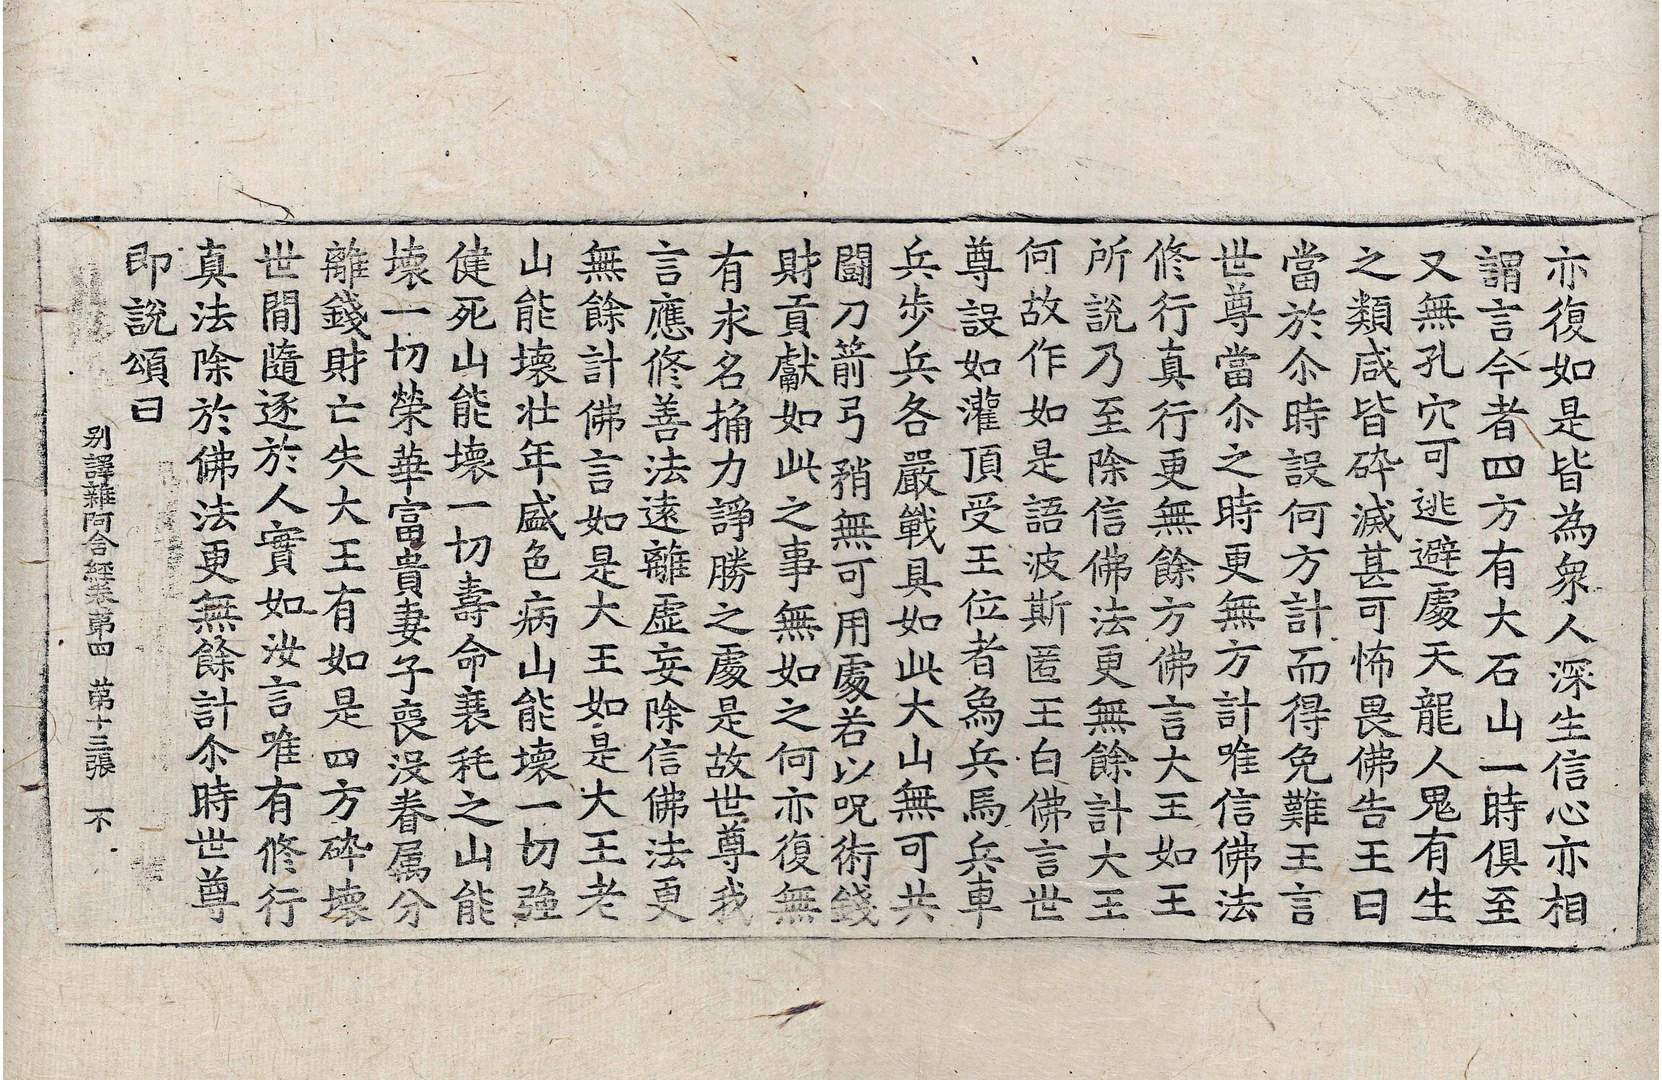 亦復如是皆為衆人深生信心亦相
謂言今者四方有大石山一時俱至
又無孔穴可逃避處天龍人鬼有生
之類咸皆碎滅甚可怖畏佛告王曰
當於尒時設何方計而得免難王言
世尊當尒之時更無方計唯信佛法
修行真行更無餘方佛言大王如王
所說乃至除信佛法更無餘計大王
何故作如是語波斯匿王白佛言世
尊設如灌頂受王位者為兵馬兵車
兵步兵各嚴戰具如此大山無可共
鬪刀箭弓矟無可用處若以呪術錢
財貢獻如此之事無如之何亦復無
有求名捔力諍勝之處是故世尊我
言應修善法遠離虛妄除信佛法更
無餘計佛言如是大王如是大王老
山能壞壯年盛色病山能壞一切強
健死山能壞一切壽命衰秏之山能
壞一切榮華富貴妻子喪沒眷属分
離錢財亡失大王有如是四方碎壞
世間隨逐於人實如汝言唯有修行
真法除於佛法更無餘計尒時世尊
即說頌曰
别譯雜阿含經卷第四 第十三張 不